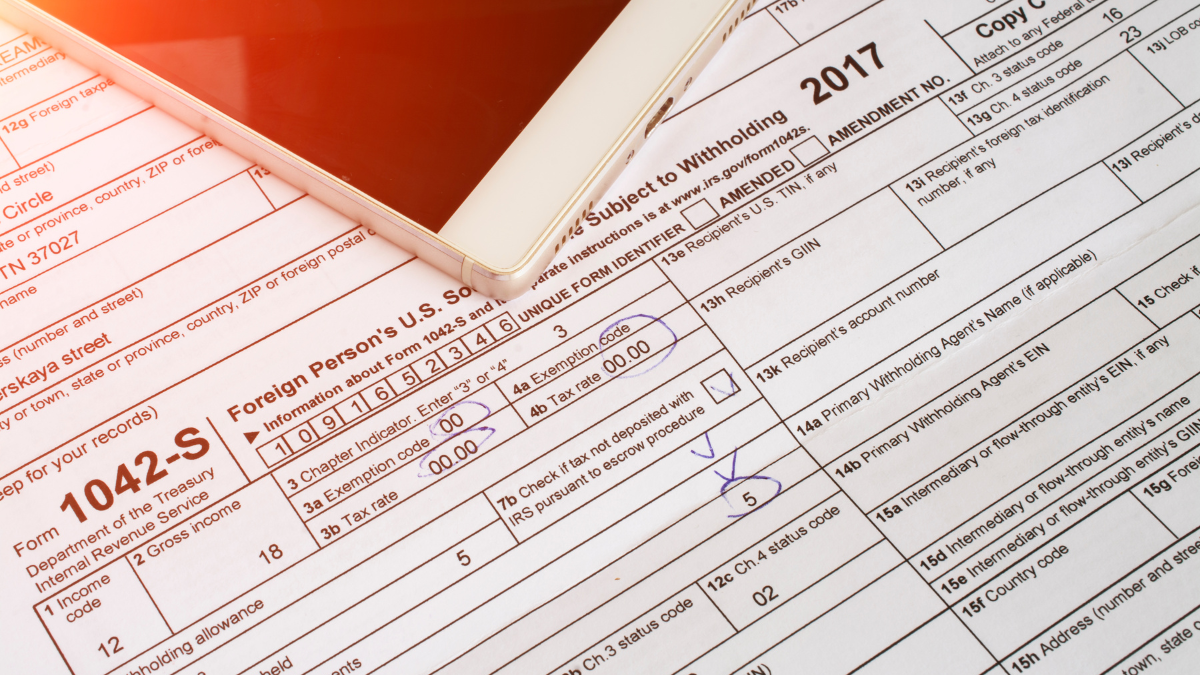 17b
2017
Copy C
Attach to any Federal
13f Ch. 3 status code 16
13g Ch. 4 status code 23
13j LOB
12g Foreign
Circle
TN 37027
name
(number and street)
street
Form 1042-S
Department of the Treasury
Internal Revenue Service
Foreign Person's U.S.
Subject to Withholding
Information about Form 1042-S and
instructions is at www.irs.gov/form1042s.
UNIQUE FORM IDENTIFIER
AMENDED
AMENDMENT NO.
1 0 9 1 6 5 2 3 4 6
1 Income code
12
2 Gross income
18
3 Chapter Indicator. Enter "3" or "4"
3
3a Exemption code 00
3b Tax rate 00.00
4a Exemption code
4b Tax rate 00.00
5
7b Check if tax not deposited with
IRS pursuant to escrow procedure
5
allowance
Ch.3 status code
12c Ch.4 status code
02
13e Recipient's U.S. TIN, if any
13h Recipient's GIIN
13i Recipient's foreign tax identification
number, if any
13k Recipient's account number
14a Primary Withholding Agent's Name (if applicable)
14b Primary Withholding Agent's EIN
15 Check if
15a Intermediary or flow-through entity's EIN, if any
15d Intermediary or flow-through entity's name
15e Intermediary or flow-through entity's GIIN
15f Country code
15g
15h Address (number and
town, state